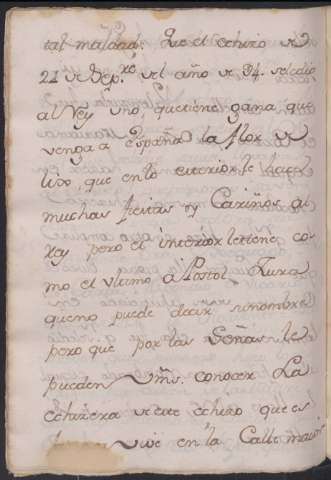 tal maldad. Que el echizo de
22 de Sep.re del año de 94. se le dio
al Rey que tiene gana que
venga a España la flor de
Lix, que en lo exterior le hacen
muchas fiestas y Cariños al
Rey pero el interior le tiene co-
mo el ultimo aPostol. Jura
que no puede decir su nombre
pero que por las Señas le
pueden Vms. conocer La
echizera de este echizo que es
Vive en la Calle maior